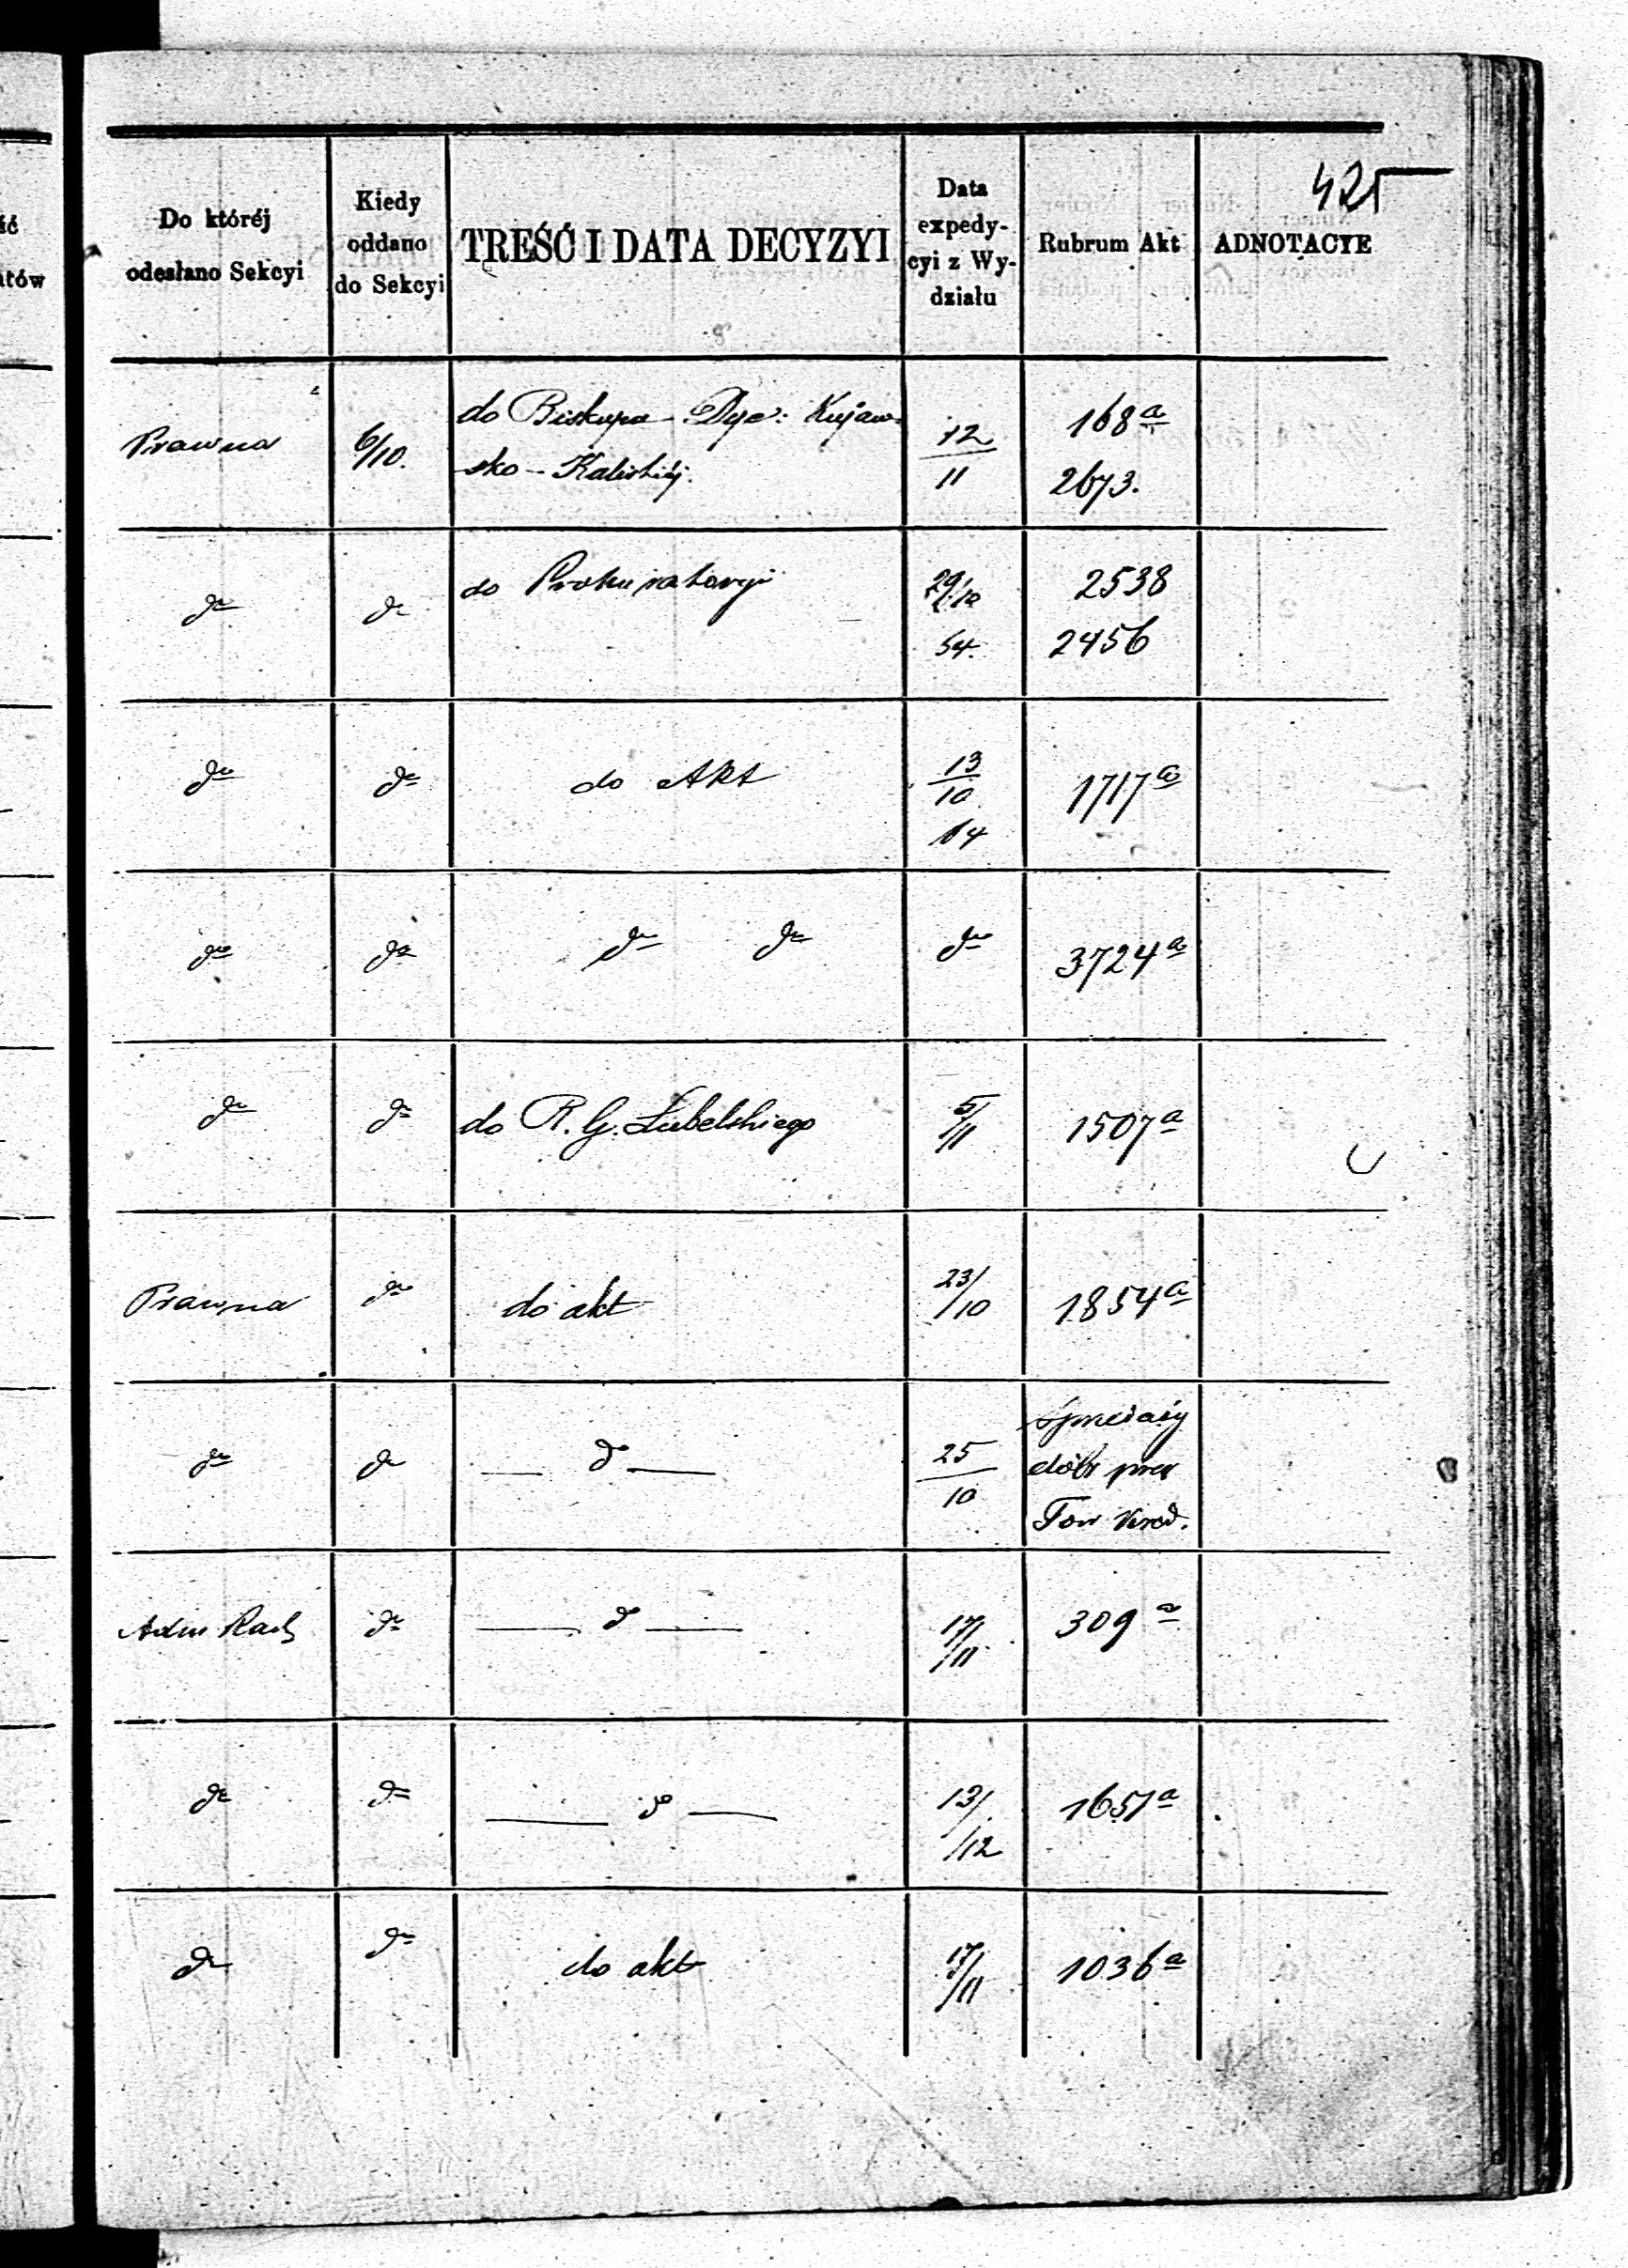 425
ść
atów
Do któréj
odesłano Sekcyi
Kiedy
oddano
do Sekcyi
TREŚĆ I DATA DECYZYI
Data
expedy-
cyi z Wy-
działu
Rubrum Akt
ADNOTACYE
Prawna
6/10.
do Biskupa Dye: Kujaw-
sko-Kaliskiéj.
12
11
168 a
2673.
do
do
do Prokuratoryi
29/10
54.
2538
2456
do
do
do Akt
13
10
14
1717 a
do
do
do do
do
3724 a
do
do
do R. G. Lubelskiego
5/11
1507 a
Prawna
do
do akt
23/10
1854 a
do
do
— do —
25
10
dóbr przez
Tow Kred.
Adm Rach
do
— do —
17/11
309 a
do
do
— do —
13/12
1651 a
do
do
do akt
17/11
1036 a